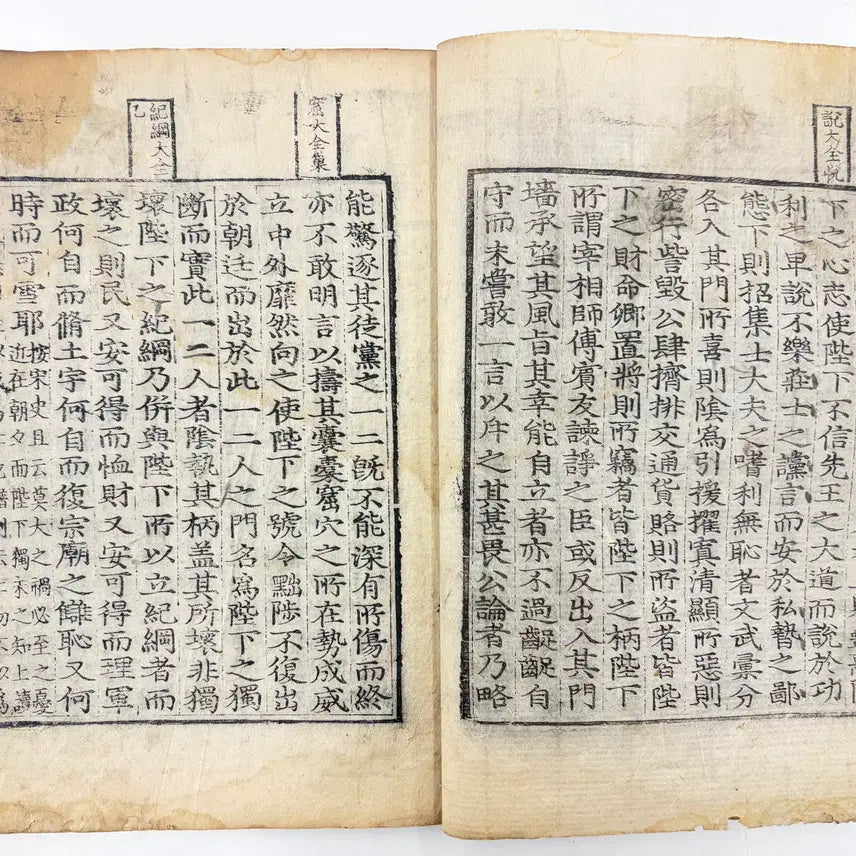 說大全悅
下之心志使陛下不信先王之大道而說於功
利之卑說不樂莊士之讜言而安於私䙝之鄙
態下則招集士大夫之嗜利無恥者文武彙分
各入其門所喜則陰爲引援擢寘清顯所惡則
密行訾毀公肆擠排交通貨賂則所盜者皆陛
下之財命卿置將則所竊者皆陛下之柄陛下
所謂宰相師傅賓友諫諍之臣或反出入其門
墻承望其風旨其幸能自立者亦不過齪齪自
守而未嘗敢一言以斥之其甚畏公論者乃略
窟大全集
能驚逐其徒黨之一二旣不能深有所傷而終
亦不敢明言以擣其囊橐窟穴之所在勢成威
立中外靡然向之使陛下之號令黜陟不復出
於朝廷而出於此一二人之門名爲陛下之獨
斷而實此一二人者陰執其柄盖其所壞非獨
紀綱大全
壞陛下之紀綱乃併與陛下所以立紀綱者而
壞之則民又安可得而恤財又安可得而理軍
政何自而脩土宇何自而復宗廟之讎恥又何
時而可雪耶按宋史且云莫大之禍必至之憂
近在朝夕而陛下獨未之知上讀